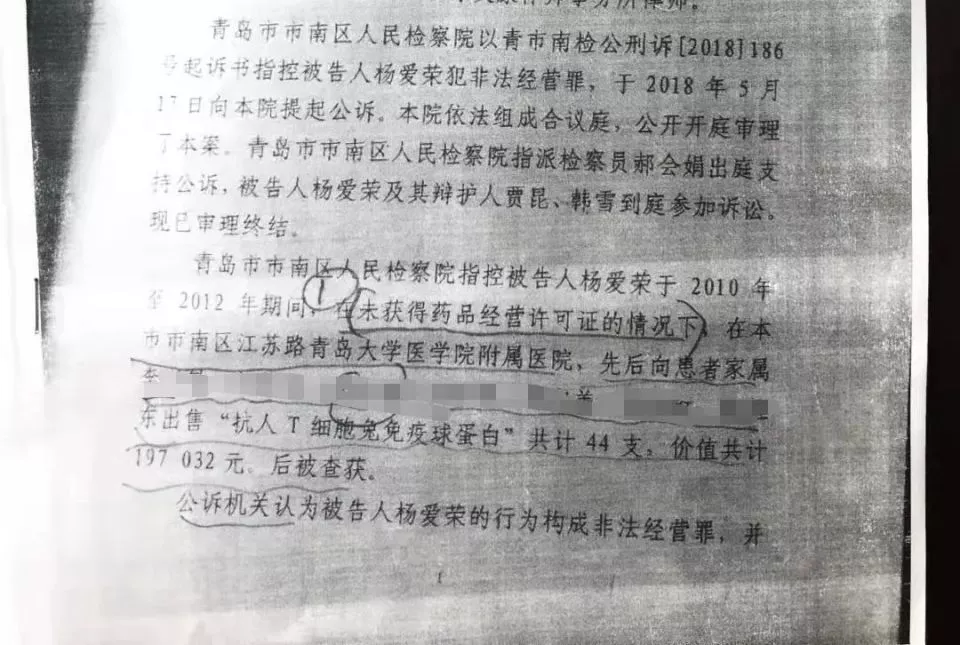 事务所律师。
青岛市市南区人民检察院以青市南检公刑诉[2018]186
号起诉书指控被告人杨爱荣犯非法经营罪，于 2018 年 5 月
17日向本院提起公诉。本院依法组成合议庭，公开开庭审理
了本案。青岛市市南区人民检察院指派检察员郝会娟出庭支
持公诉，被告人杨爱荣及其辩护人贾昆、韩雪到庭参加诉讼。
现已审理终结。
青岛市市南区人民检察院指控被告人杨爱荣于 2010 年
至 2012 年期间，在未获得药品经营许可证的情况下，在本
市市南区江苏路青岛大学医学院附属医院，先后向患者家属
东出售“抗人 T 细胞兔免疫球蛋白”共计 44 支，价值共计
197 032 元。后被查获。
公诉机关认为被告人杨爱荣的行为构成非法经营罪，并
1
①